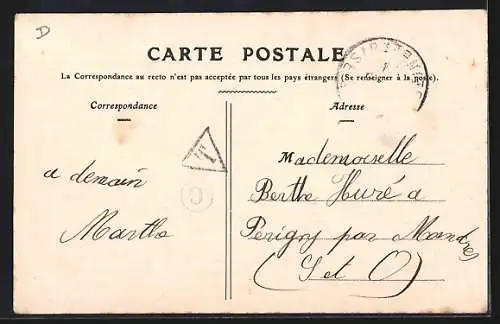 D
CARTE POSTALE
La Correspondance au recto n'est pas acceptée par tous les pays étrangers (Se renseigner à la poste).
Correspondance
Adresse
T
G
a demain
Martha
Mademoiselle
Berthe Huré a
Périgny par Mandres
(S et O)